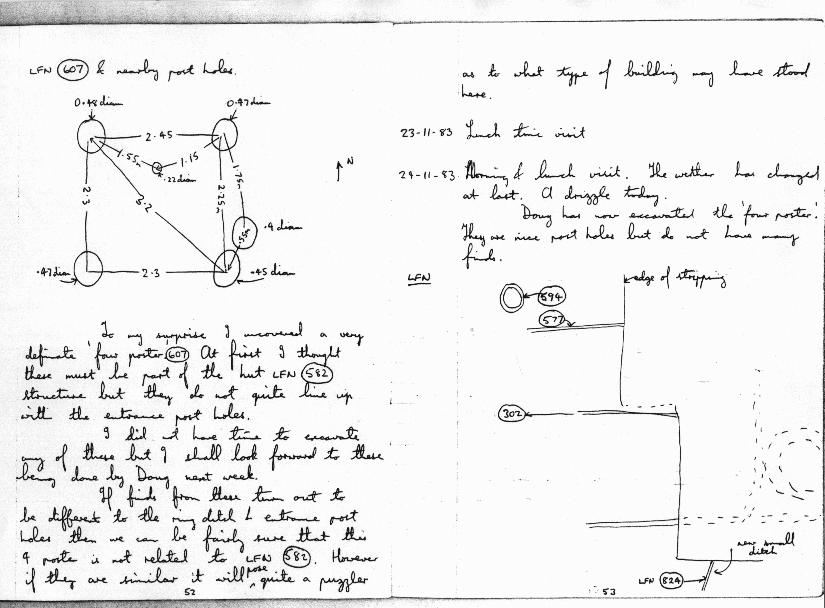 LFN 607 & nearby post holes.
0.48 diam
0.47 diam
2.45
1.55m
1.15
.22 diam
1.75m
N
2.3
3.2
2.25m
.55m
.4 diam
.47 diam
2.3
.45 diam
To my surprise I uncovered a very
definate 'four poster' 607 At first I thought
these must be part of the hut LFN 582
structure but they do not quite line up
with the entrance post holes.
I did not have time to excavate
any of these but I shall look forward to these
being done by Doug next week.
If finds from these turn out to
be different to the ring ditch & entrance post
holes then we can be fairly sure that this
4 poste is not related to LFN 582. However
if they are similar it will pose quite a puzzler
52
as to what type of building may have stood
here.
23-11-83 Lunch time visit
24-11-83. Morning & lunch visit. The wether has changed
at last. A drizzle today.
Doug has now excavated the 'four poster'.
They are nice post holes but do not have many
finds.
LFN
edge of stripping
594
577
302
new small
ditch
LFN 824
53